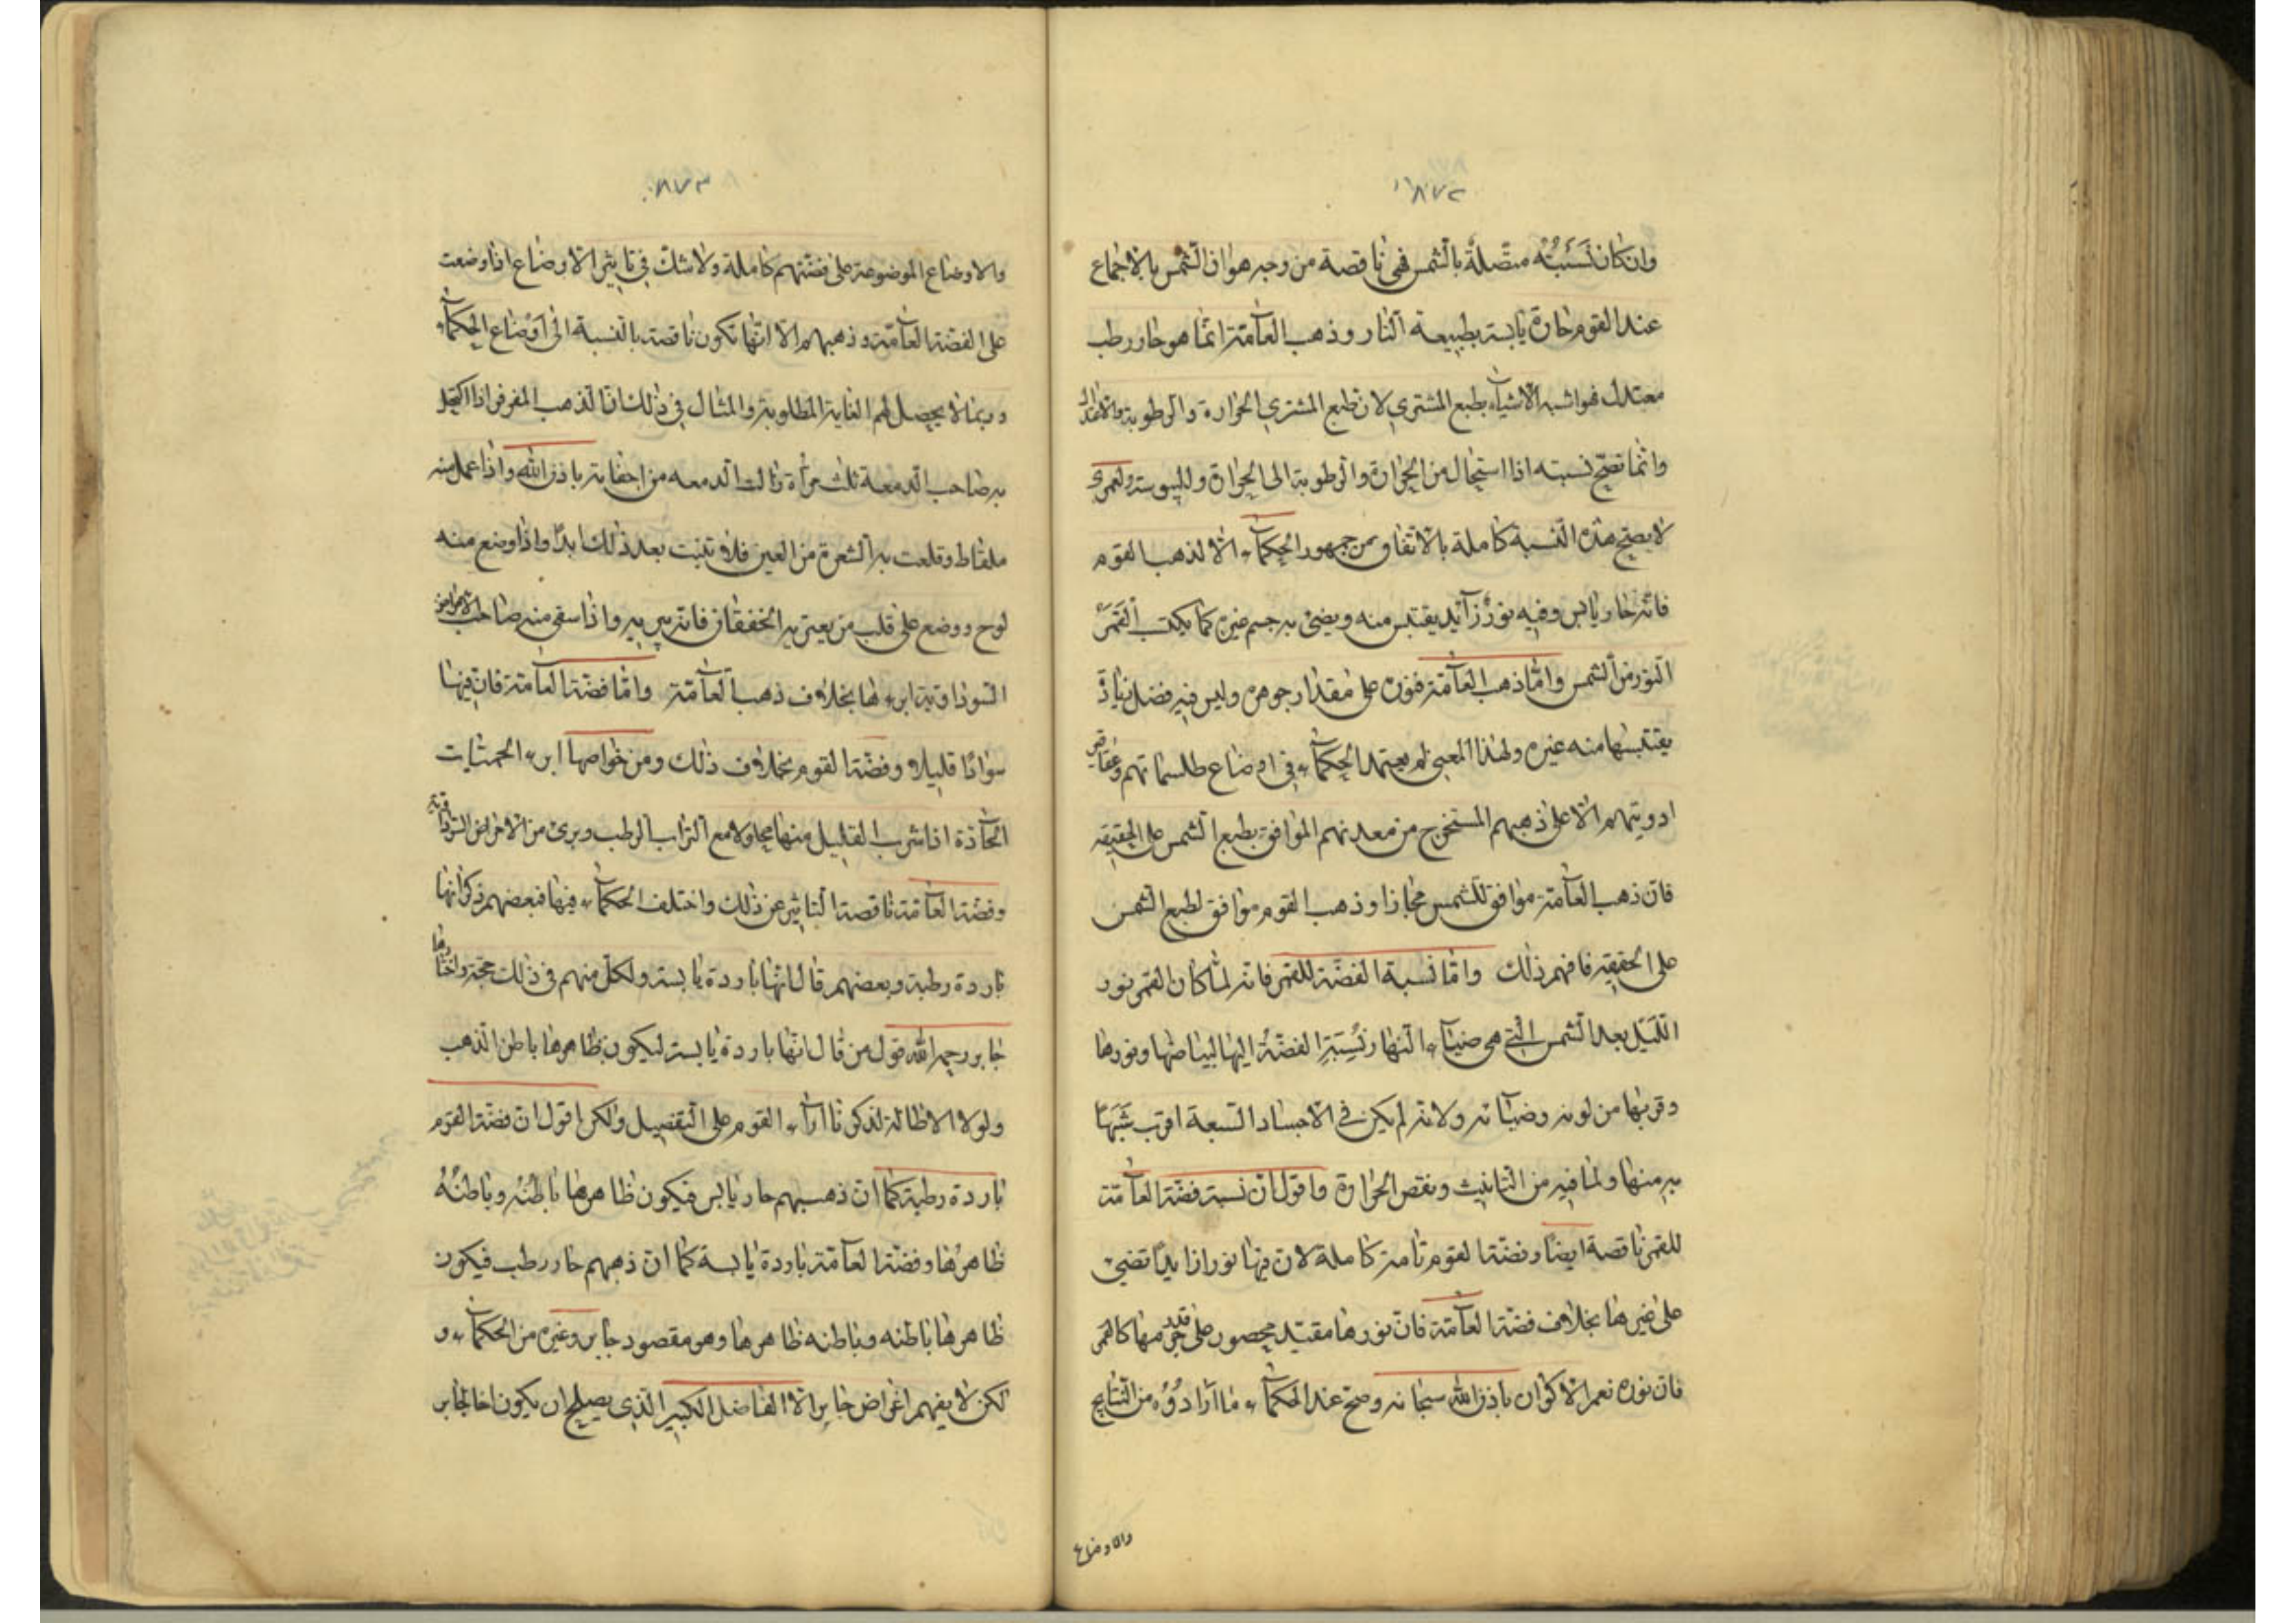 ٨٧٢
وان كان نَسَبَتُه متّصلة بالشمس فهى ناقصة من وجه هو ان الشمس بالاجماع
عند القوم حارة يابسة بطبيعة النار وذهب العآمّة انّما هو حار ورطب
معتدل فهو اشبه الاشيآء بطبع المشتري لان طبع المشتري الحرارة والرطوبة والاعتدال
وانّما تصحّ نسبته اذا استحال من الحرارة والرطوبة الى الحرارة ولليبوسة ولعمرى
لا يصحّ هذه النسبة كاملة بالاتفاق من جمهور الحكمآء الّا لذهب القوم
فانّه حار يابس وفيه نورٌ زآئد يقتبس منه ويضئ به جسم غيره كما يكتسب القمَرُ
النور من الشمس وامّا ذهب العآمّة فنوره على مقدار جوهره وليس فيه فضل زيادة
يقتبسها منه غيره ولهذا المعنى لم يعتمد الحكمآء فى اوضاع طلسماتهم وعقاقير
ادويتهم الّا على ذهبهم المستخرج من معدنهم الموافق بطبع الشمس على الحقيقه
فانّ ذهب العآمّة موافق للشمس مجازا وذهب القوم موافق لطبع الشمس
على الحقيقه فافهم ذلك وامّا نسبة الفضّة للقمر فانه لمّا كان القمر نور
اللّيل بعد الشمس الّتى هى ضيآء النهار نُسِبَتِ الفضّةُ اليها لبياضها ونورها
وقربها من لونه وضيآئه ولانه لم يكن فى الاجساد السبعة اقرب شَبَهًا
به منها ولما فيه من التانيث ونقص الحرارة واقول انّ نسبة فضّة العآمّة
للقمر ناقصة ايضًا وفضّة القوم تامة كاملة لان فيها نورا زايدًا تضئ
على غيرها بخلاف فضّة العآمّة فانّ نورها مقيّد محصور على قدر جرمها كالقمر
فانّ نوره نعم الاكوان باذن الله سبحانه وصحّ عند الحكمآء ما ارادُوُه من النتايج
والاوضاع
٨٧٣
والاوضاع الموضوعة على فضّتهم كاملة ولا شكّ فى تاثير الاوضاع اذا وضعت
على الفضّة العآمّة وذهبهم الّا انّها تكون ناقصة بالنسبة الى اوضاع الحكمآء
وربما لا يحصل لهم الغاية المطلوبة والمثال فى ذلك انّ الذهب المفرفر اذا اكتحل
به صاحب الدمعة ثلث مرّاة زالت الدمعه من اجفانه باذن الله واذا عمل منه
ملقاط وقلعت به الشعرة من العين فلا تنبت بعد ذلك ابدًا واذا وضع منه
لوح ووضع على قلب من يعتريه الخفقان فانّه يبريه واذا سقى منه صاحب الامراض
السّوداوية ابرءها بخلاف ذهب العآمّة وامّا فضّة العآمّة فانّ فيها
سوادًا قليلا وفضّة القوم بخلاف ذلك ومن خواصها ابرء الحميّات
الحآدّة اذا شرب القليل منها محلولا مع التراب الرطب وبرئ من الامراض السّوداوية
وفضّة العآمّة ناقصة التاثير عن ذلك واختلف الحكمآء فيها فبعضهم ذكر انها
باردة رطبة وبعضهم قال انّها باردة يابسة ولكلّ منهم فى ذلك حجّة واختارها
جابر رحمه الله قول من قال انّها باردة يابسة ليكون ظاهرها باطن الذهب
ولولا الاطالة لذكرنا ارآء القوم على التفصيل ولكن اقول انّ فضّة القوم
باردة رطبة كما انّ ذهبهم حار يابس فيكون ظاهرها باطنُه وباطنُهُ
ظاهرُها وفضّة العآمّة باردة يابسة كما انّ ذهبهم حار رطب فيكون
ظاهرها باطنه وباطنه ظاهرها وهو مقصود جابر وغيره من الحكمآء و
لكن لا يفهم اغراض جابر الّا الفاضل الكبير الذى يصلح ان يكون اخا لجابر